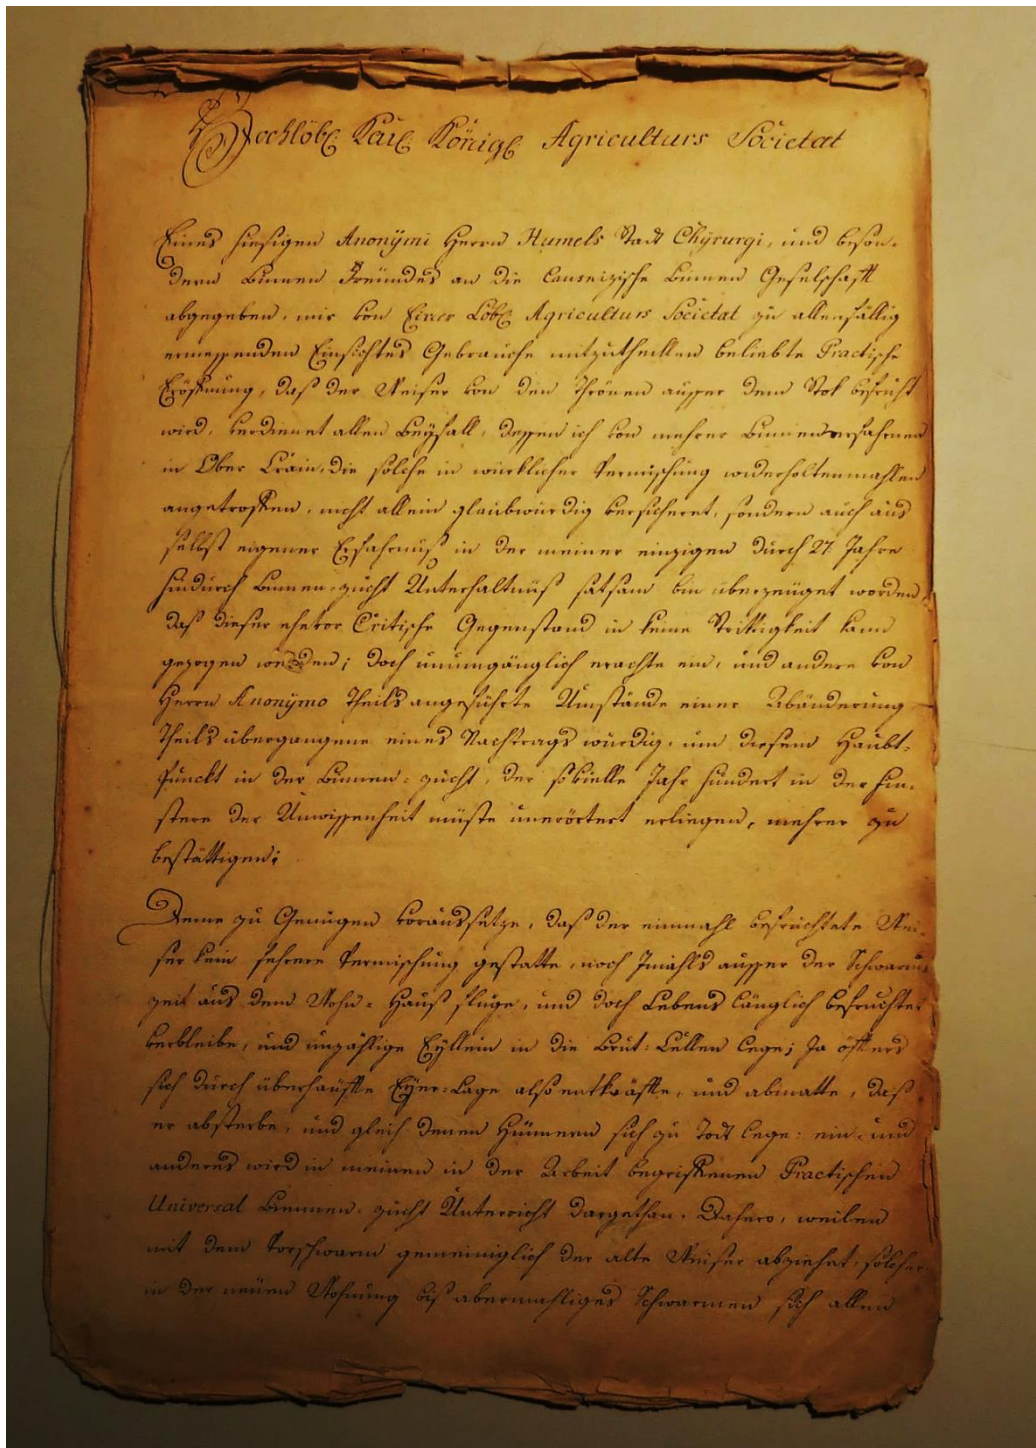 Hochlöbl Kaÿl Königl Agriculturs Societat
Eines hiesigen Anonÿmi Herrn Humels Stadt Chÿrurgi, und beson-
dern Binnen Freündes an die Lausnizische Binnen Geselschafft
abgegeben, mir von Einer Löbl Agriculturs Societat zu allenfällig
ermessenden Einsichtes Gebrauche mitzutheillen beliebte Practische
Eröffnung, daß der Weiser von den Thrönen ausser dem Stok befrucht
wird, verdienet allen Beÿfall, dessen ich von mehrer Binnen erfahrnen
in Ober Crain, die solche in würklicher Vermischung widerholtenmahlen
angetroffen, nicht allein glaubwürdig versicheret, sondern auch aus
selbst eigener Erfahrnuß in der meiner einzigen durch 27 Jahre
hindurch Binnen-zucht Unterhaltnuß sattsam bin überzeüget worden,
daß dieser ehevor Critische Gegenstand in keine Strittigkeit kann
gezogen werden; doch unumgänglich erachte ein, und andere von
Herrn Anonÿmo Theils angeführte Umstände einer Abänderung
Theils übergangene eines Nachtrags würdig, um diesem Haubt-
Punckt in der Binnen-zucht, der sovielle Jahr hundert in der Fin-
stere der Unwissenheit müste unerörtert erliegen, mehrer zu
bestättigen:
Deme zu Genügen voraussetze, daß der einmahl befruchtete Wei-
ser kein fehrere Vermischung gestatte, noch Jmahls ausser der Schwarms
zeit aus dem Wohn-Hauß fluge, und doch Lebens länglich befruchtet
verbleibe, und unzählige Eÿllein in die Brut-Cellen lege; Ja öffters
sich durch überhäuffte Eÿer-Lage also entkräffte, und abmatte, daß
er absterbe, und gleich denen Hünnern sich zu Todt lege: ein- und
anderes wird in meinen in der Arbeit begriffenen Practischen
Universal Biennen-zucht Unterricht dargethan. Dahero, weilen
mit dem Vorschwarm gemeiniglich der alte Weiser abziehet, solcher
in der neüen Wohnung biß abermahliges Schwarmen sich allen